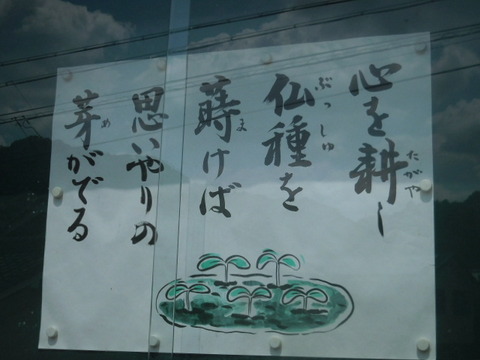 心を耕し
たがや
仏種を
ぶっしゅ
蒔けば
ま
思いやりの
芽がでる
め